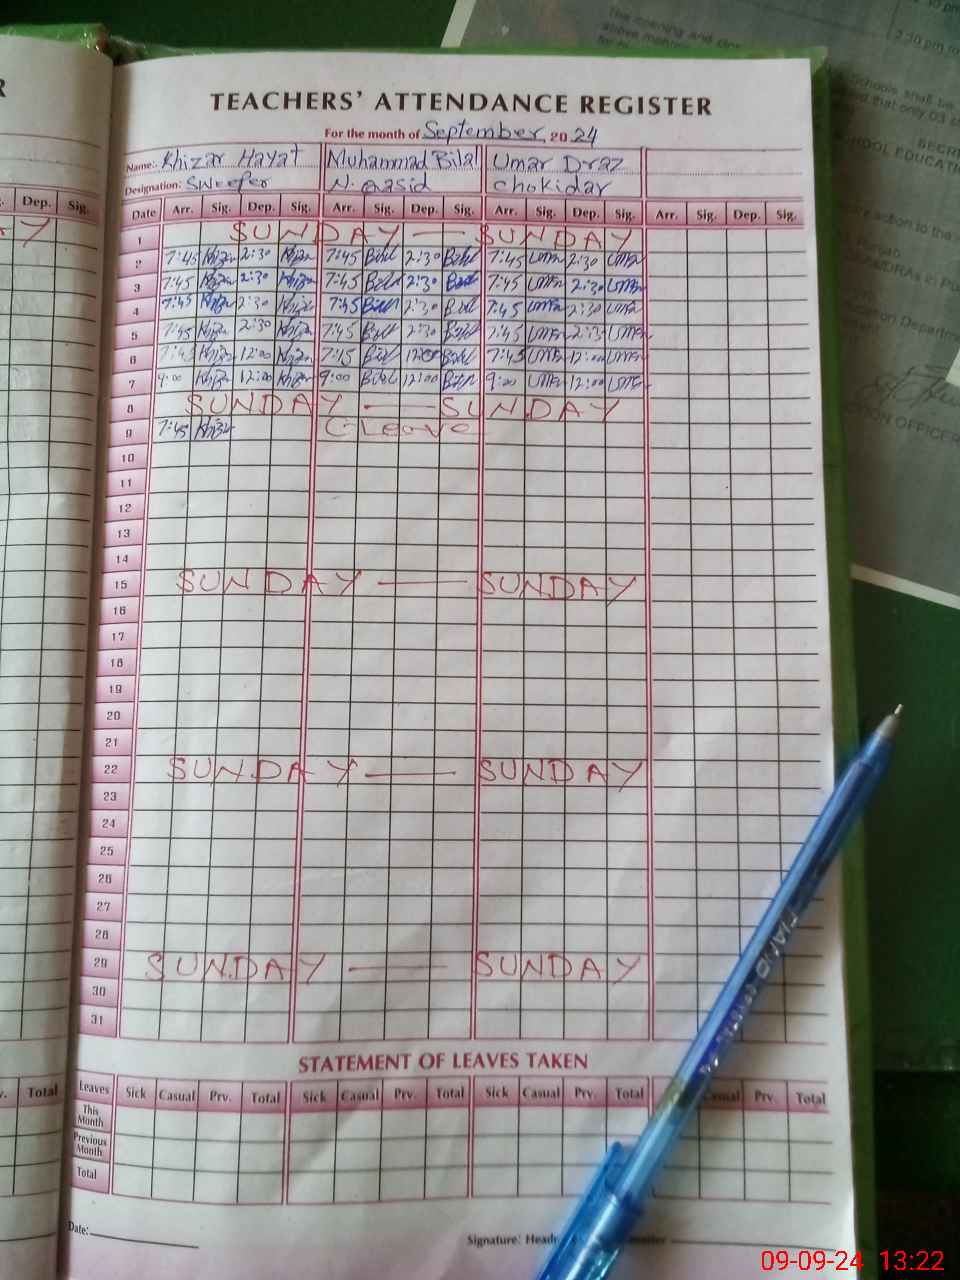 TEACHERS' ATTENDANCE REGISTER
For the month of September 2024
Name: Khizar Hayat Muhammad Bilal Umar Draz
Designation: Sweeper N. Qasid Chokidar
Date Arr. Sig. Dep. Sig. Arr. Sig. Dep. Sig. Arr. Sig. Dep. Sig. Arr. Sig. Dep. Sig.
1 SUNDAY — SUNDAY
2 7:45 Khizar 2:30 Khizar 7:45 Bilal 2:30 Bilal 7:45 Umar 2:30 Umar
3 7:45 Khizar 2:30 Khizar 7:45 Bilal 2:30 Bilal 7:45 Umar 2:30 Umar
4 7:45 Khizar 2:30 Khizar 7:45 Bilal 2:30 Bilal 7:45 Umar 2:30 Umar
5 7:45 Khizar 2:30 Khizar 7:45 Bilal 2:30 Bilal 7:45 Umar 2:30 Umar
6 7:45 Khizar 12:00 Khizar 7:15 Bilal 12:00 Bilal 7:45 Umar 12:00 Umar
7 9:00 Khizar 12:00 Khizar 9:00 Bilal 12:00 Bilal 9:00 Umar 12:00 Umar
8 SUNDAY — SUNDAY
9 7:45 Khizar C-Leave
10
11
12
13
14
15 SUNDAY — SUNDAY
16
17
18
19
20
21
22 SUNDAY — SUNDAY
23
24
25
26
27
28
29 SUNDAY — SUNDAY
30
31
STATEMENT OF LEAVES TAKEN
Leaves Sick Casual Prv. Total Sick Casual Prv. Total Sick Casual Prv. Total Casual Prv. Total
This Month
Previous Month
Total
Date:
Signature:
Dep. Sig.
Total
2:30 pm
The opening and
above
Schools shall be
that only 03
SECRE
EDUCATI
action to the
Department
OFFICER
PIANO
09-09-24 13:22